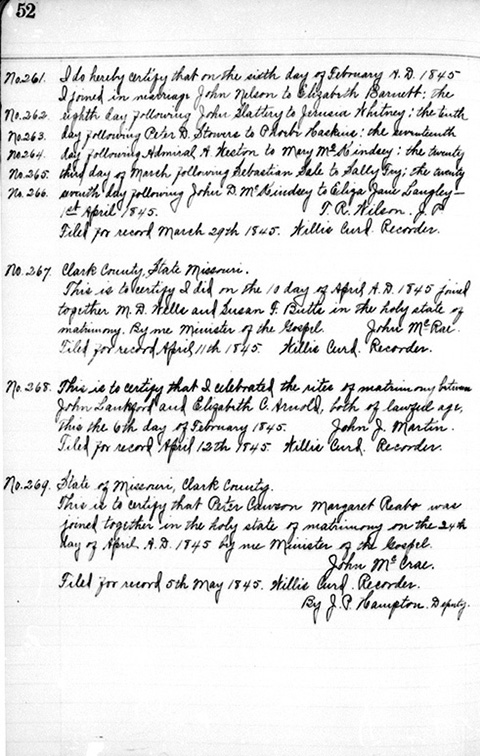 52
No. 261. I do hereby certify that on the sixth day of February A.D. 1845
I joined in marriage John Nelson to Elizabeth Barnett: the
No. 262. eighth day following John Slattery to Jerusia Whitney: the tenth
No. 263. day following Peter D. Stovers to Phoebe Haskins: the seventeenth
No. 264. day following Admiral A. Weston to Mary McKindsey: the twenty
No. 265. third day of March following Sebastian Sale to Sally Fry; the twenty
No. 266. seventh day following John D. McKindsey to Eliza Jane Langley—
1st April 1845. T. R. Wilson. J. P.
Filed for record March 29th 1845. Willis Curd. Recorder.
No. 267. Clark County, State Missouri.
This is to certify I did on the 10 day of April A.D. 1845 joined
together M. D. Wells and Susan F. Butts in the holy state of
matrimony. By me Minister of the Gospel. John McRae.
Filed for record April 11th 1845. Willis Curd. Recorder.
No. 268. This is to certify that I celebrated the rites of matrimony between
John Lankford and Elizabeth C. Arnold, both of lawful age,
this the 6th day of February 1845. John J. Martin.
Filed for record April 12th 1845. Willis Curd. Recorder.
No. 269. State of Missouri, Clark County.
This is to certify that Peter Cawson Margaret Reabo was
joined together in the holy state of matrimony on the 24th
day of April A.D. 1845 by me Minister of the Gospel.
John McCrae.
Filed for record 5th May 1845. Willis Curd. Recorder.
By J. P. Hampton. Deputy.